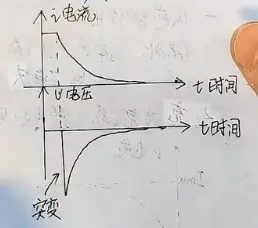 i 电流
t 时间
U 电压
t 时间
突变